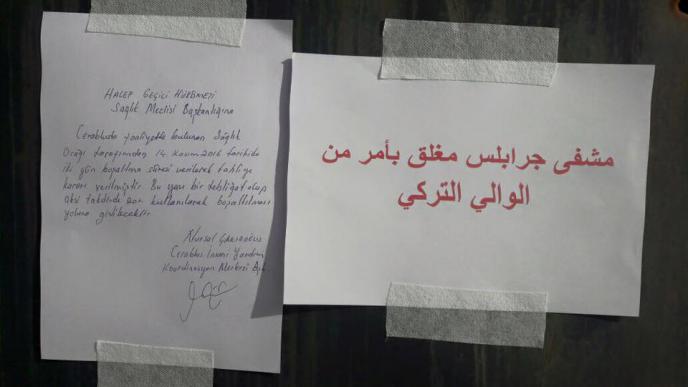 HALEP GEÇİCİ HÜKÜMETİ
Sağlık Meclisi Başkanlığına
Cerablusta faaliyette bulunan Sağlık
Ocağı tarafımızdan 14 Kasım 2016 tarihide
iki gün boşaltma süresi verilerek tahliye
kararı verilmiştir. Bu yazı bir tebligat olup
aksi takdirde zor kullanılarak boşaltılması
yoluna gidilecektir
Nursal
Cerablus İnsani Yardım
Koordinasyon Merkezi Bşk.
مشفى جرابلس مغلق بأمر من
الوالي التركي